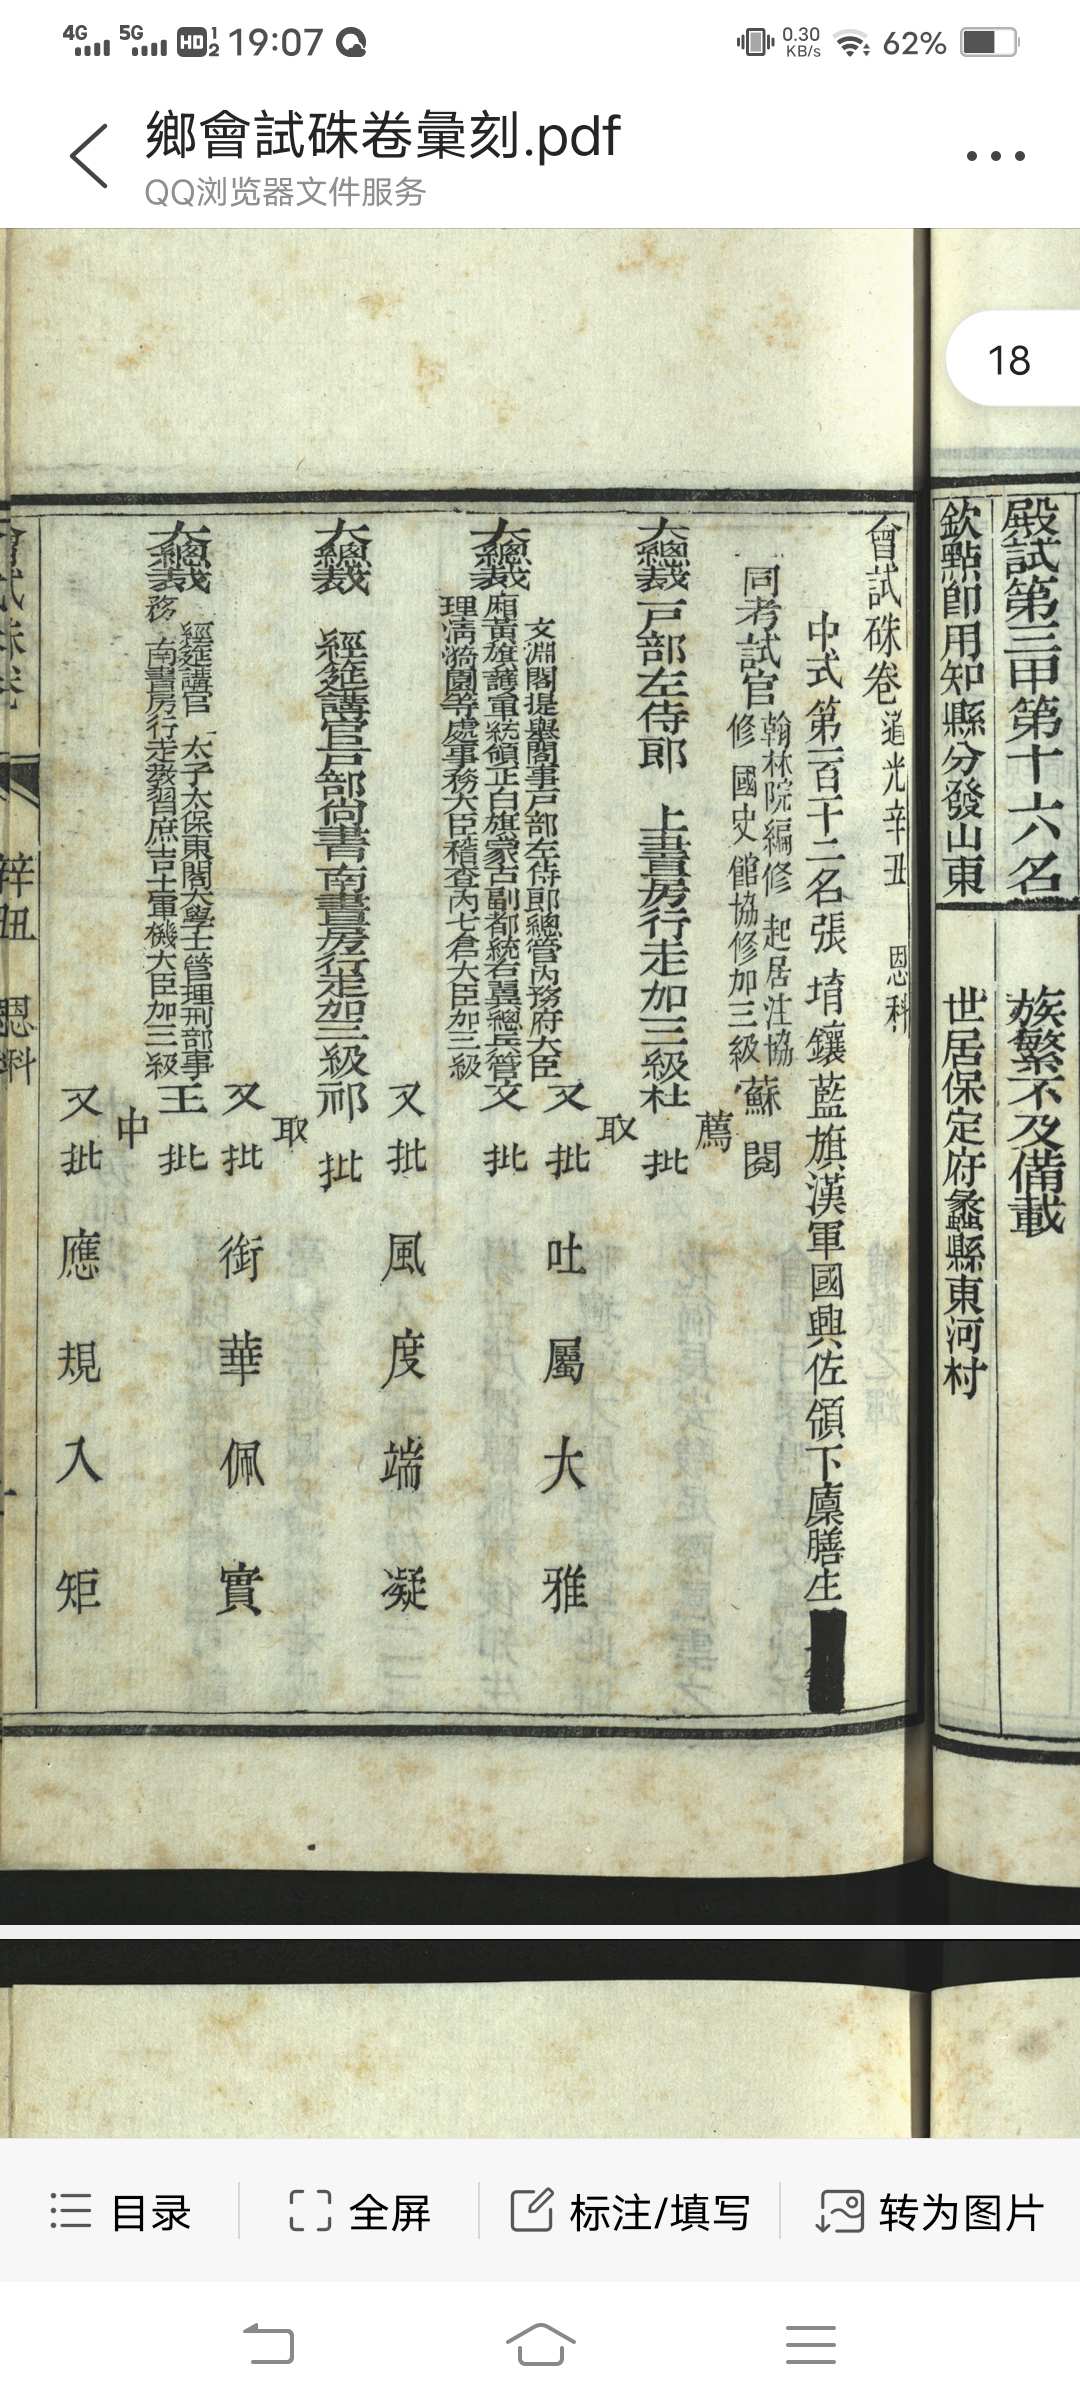 4G 5G HD 1 2 19:07 0.30 KB/s 62%
鄉會試硃卷彙刻.pdf
QQ浏览器文件服务
18
殿試第三甲第十六名
族繁不及備載
欽點即用知縣分發山東
世居保定府蠡縣東河村
會試硃卷 道光辛丑 恩科
中式第一百十二名張堉鑲藍旗漢軍國興佐領下廩膳生
同考試官 翰林院編修 起居注協
修 國史館協修加三級 蘇 閱
薦
大總裁戶部左侍郎 上書房行走加三級杜 批
取
又批 吐屬大雅
大總裁 文淵閣提舉閣事戶部左侍郎總管內務府大臣
廂黃旗護軍統領正白旗蒙古副都統右翼總兵管
理清漪園等處事務大臣稽查內七倉大臣加三級 文 批
又批 風度端凝
大總裁 經筵講官戶部尚書南書房行走加三級祁 批
取
又批 銜華佩實
大總裁 經筵講官 太子太保東閣大學士管理刑部事
務 南書房行走教習庶吉士軍機大臣加三級 王 批
中
又批 應規入矩
會試硃卷
辛丑 恩科
目录
全屏
标注/填写
转为图片